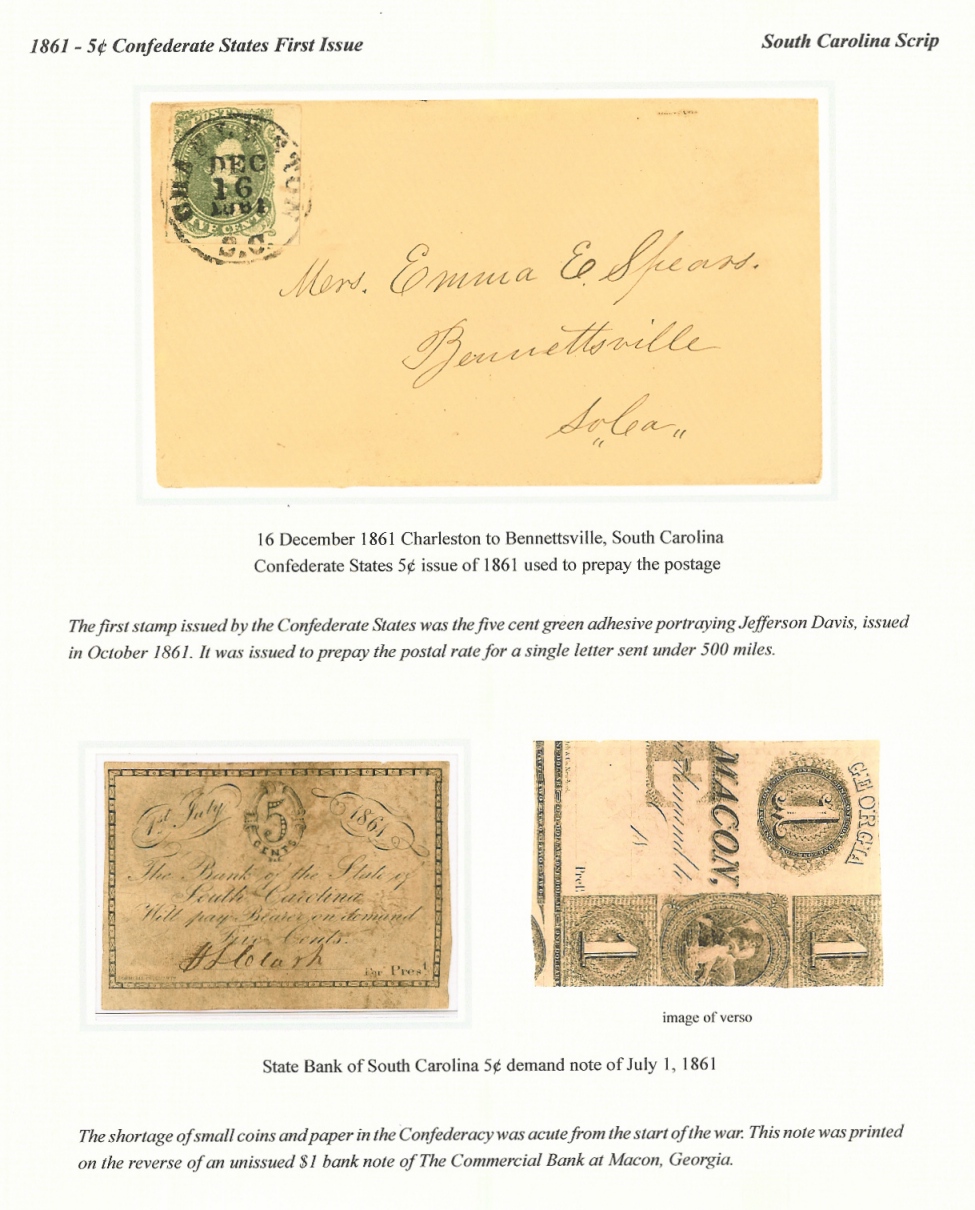 1861 - 5¢ Confederate States First Issue
South Carolina Scrip
POSTAGE
CHARLESTON
DEC
16
1861
FIVE CENTS
S.C.
Mrs. Emma E. Spears.
Bennettsville
So Ca
16 December 1861 Charleston to Bennettsville, South Carolina
Confederate States 5¢ issue of 1861 used to prepay the postage
The first stamp issued by the Confederate States was the five cent green adhesive portraying Jefferson Davis, issued
in October 1861. It was issued to prepay the postal rate for a single letter sent under 500 miles.
1st July
5
CENTS
1861
The Bank of the State of
South Carolina
Will pay Bearer on demand
Five Cents.
For Prest
GEORGIA
1
MACON,
Prest
1
1
image of verso
State Bank of South Carolina 5¢ demand note of July 1, 1861
The shortage of small coins and paper in the Confederacy was acute from the start of the war. This note was printed
on the reverse of an unissued $1 bank note of The Commercial Bank at Macon, Georgia.